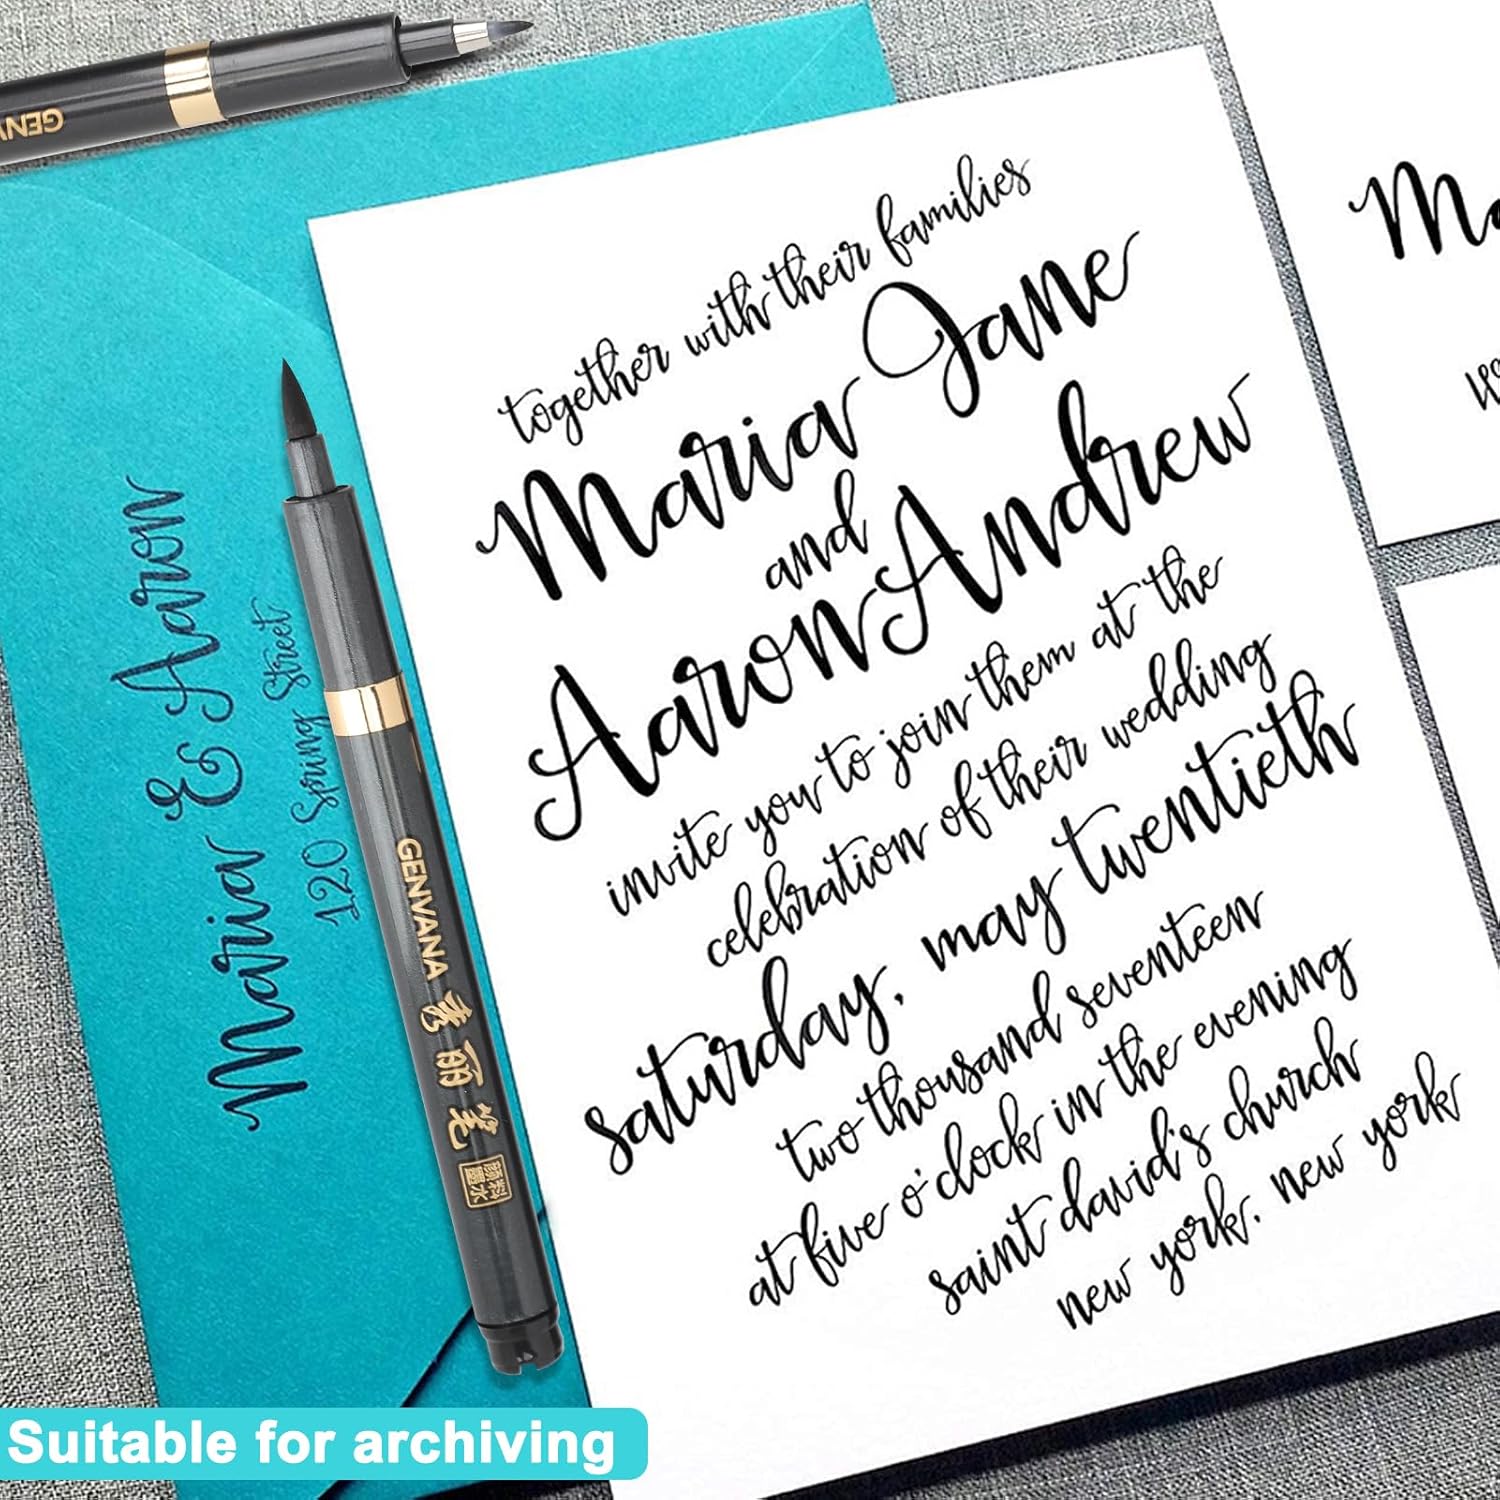 GENV
together with their families
Maria Jane
and
Aaron Andrew
invite you to join them at the
celebration of their wedding
saturday, may twentieth
two thousand seventeen
at five o'clock in the evening
saint david's church
new york, new york
Maria & Aaron
120 Spring Street
GENVANA 秀丽笔
颜料墨水
Ma
Suitable for archiving